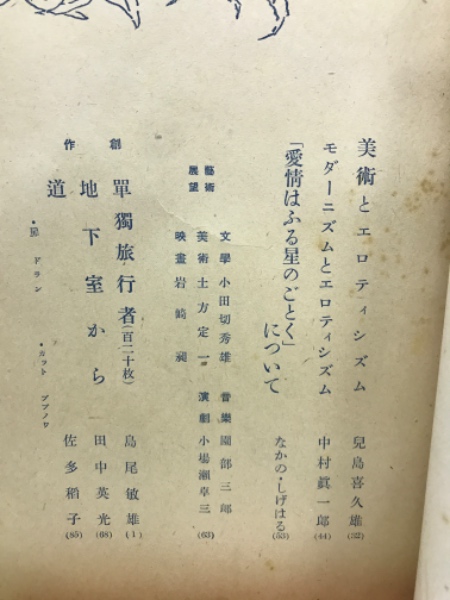 美術とエロティシズム 兒島喜久雄(32)
モダーニズムとエロティシズム 中村眞一郎(44)
「愛情はふる星のごとく」について なかの・しげはる(53)
藝術展望
文學 小田切秀雄 音樂 園部三郎
美術 土方定一 演劇 小場瀬卓三(63)
映畫 岩崎昶
創作
單獨旅行者(百二十枚) 島尾敏雄(1)
地下室から 田中英光(68)
道 佐多稻子(85)
ドラン ・カット